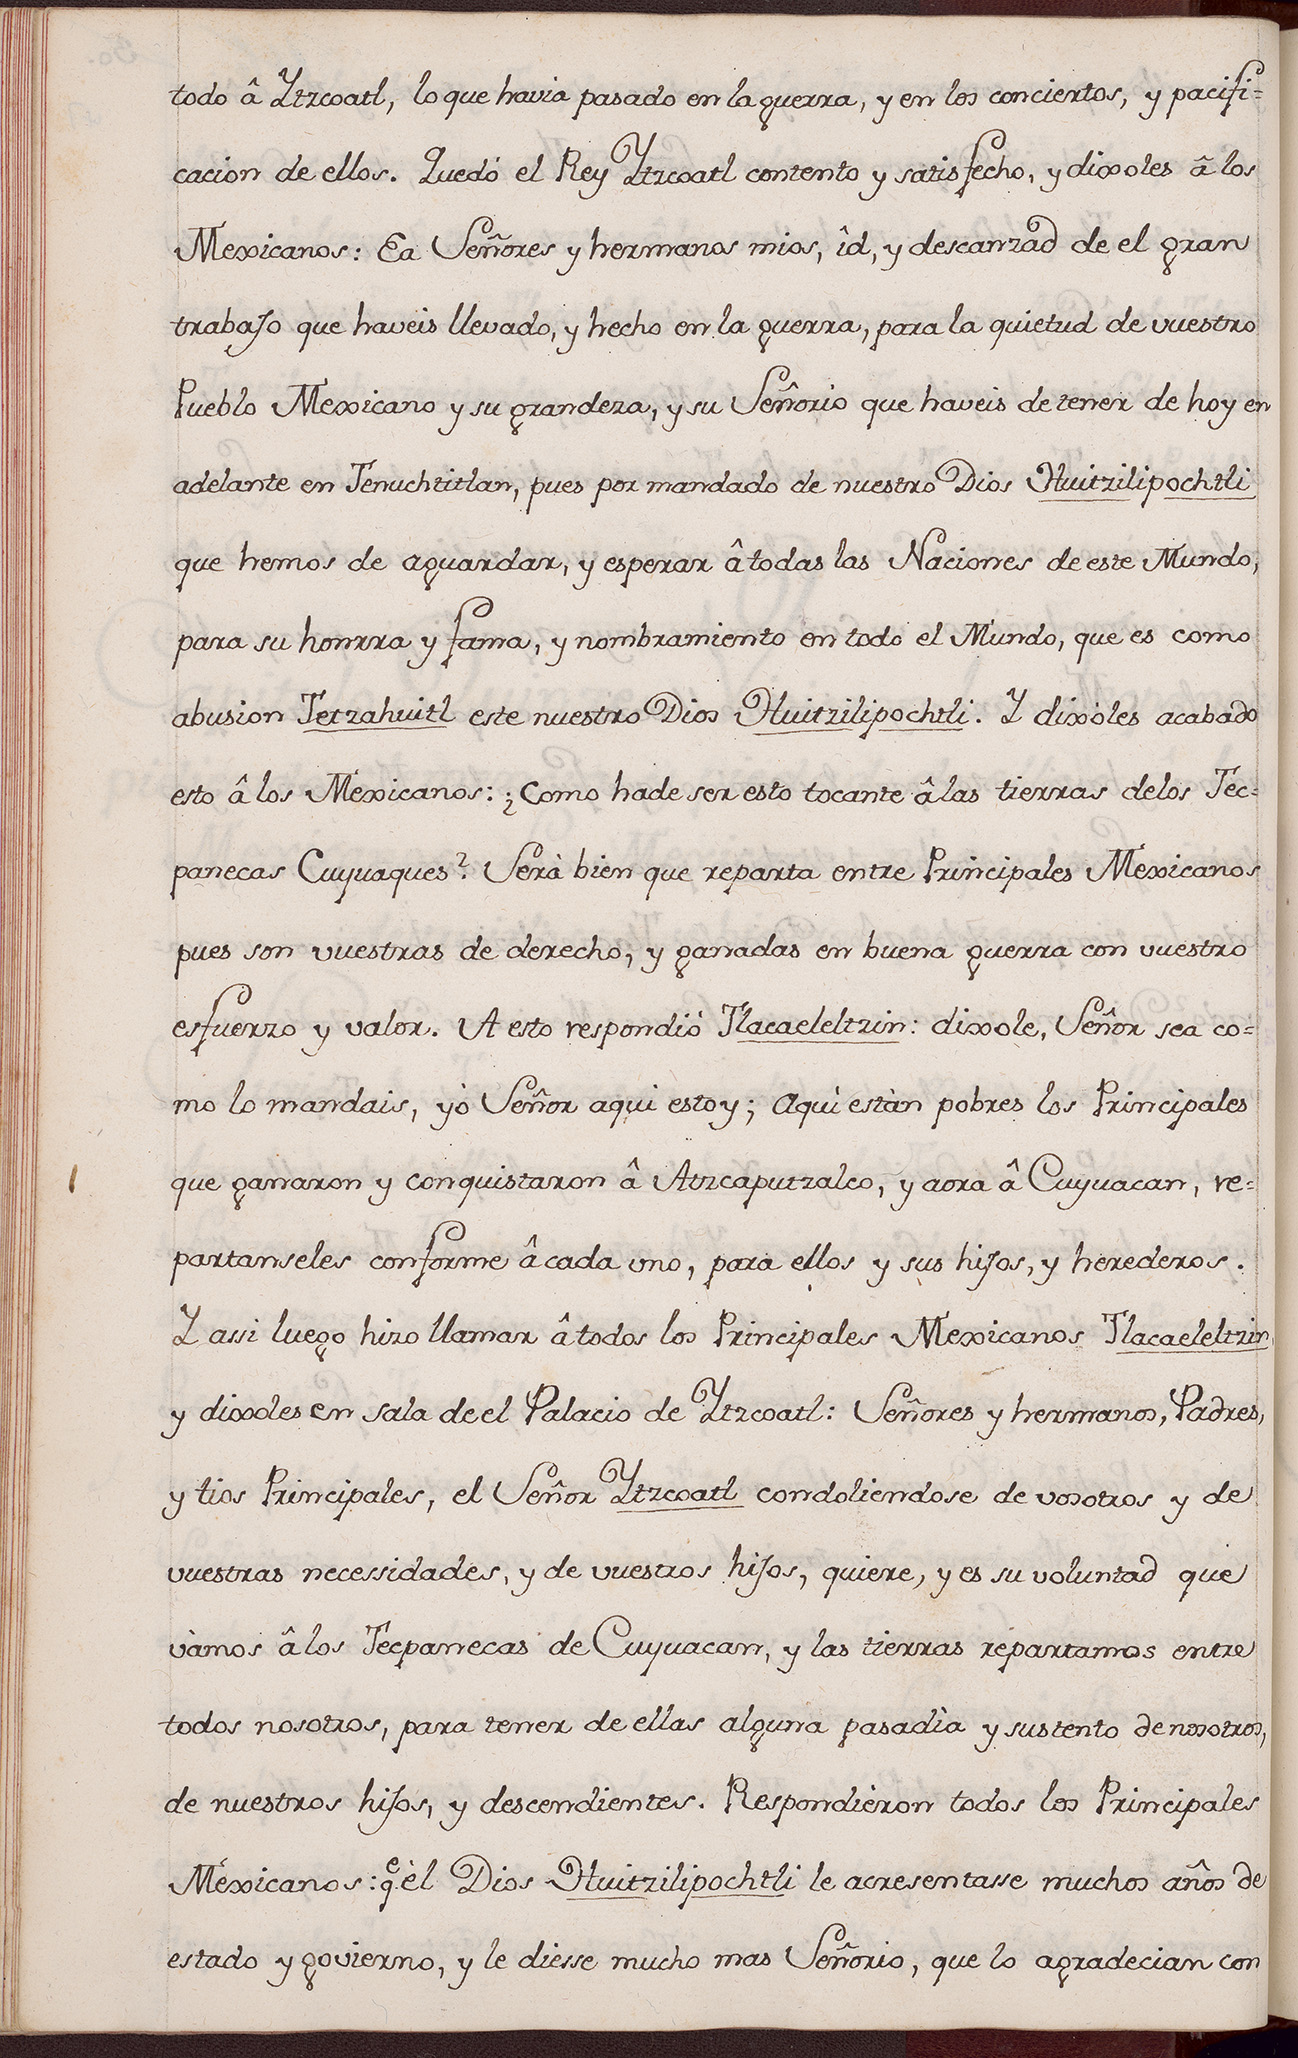 todo â Ytzcoatl, lo que havia pasado en la guerra, y en los conciertos, y pacifi=
cacion de ellos. Quedó el Rey Ytzcoatl contento y satisfecho, y dixoles â los
Mexicanos: Ea Señores y hermanos mios, îd, y descanzad de el gran
trabajo que haveis llevado, y hecho en la guerra, para la quietud de vuestro
Pueblo Mexicano y su grandeza, y su Señorio que haveis de tener de hoy en
adelante en Tenuchtitlan, pues por mandado de nuestro Dios Huitzilipochtli
que hemos de aguardar, y esperar â todas las Naciones de este Mundo,
para su honrra y fama, y nombramiento en todo el Mundo, que es como
abusion Tetzahuitl este nuestro Dios Huitzilipochtli. Y dixoles acabado
esto â los Mexicanos: ¿Como hade ser esto tocante â las tierras delos Tec=
panecas Cuyuaques? Serà bien que reparta entre Principales Mexicanos
pues son vuestras de derecho, y ganadas en buena guerra con vuestro
esfuerzo y valor. A esto respondió Tlacaeleltzin: dixole, Señor sea co=
mo lo mandais, yó Señor aqui estoy; Aquì estàn pobres los Principales
que ganaron y conquistaron â Atzcaputzalco, y aora â Cuyuacan, re=
partanseles conforme â cada uno, para ellos y sus hijos, y herederos.
Y assi luego hizo llamar â todos los Principales Mexicanos Tlacaeleltzin
y dixoles en sala de el Palacio de Ytzcoatl: Señores y hermanos, Padres,
y tios Principales, el Señor Ytzcoatl condoliendose de vosotros y de
vuestras necessidades, y de vuestros hijos, quiere, y es su voluntad que
vàmos â los Tecpanecas de Cuyuacan, y las tierras repartamos entre
todos nosotros, para tener de ellas alguna pasadìa y sustento de nosotros,
de nuestros hijos, y descendientes. Respondieron todos los Principales
Mexicanos: qe èl Dios Huitzilipochtli le acresentasse muchos años de
estado y govierno, y le diesse mucho mas Señorio, que lo agradecian con